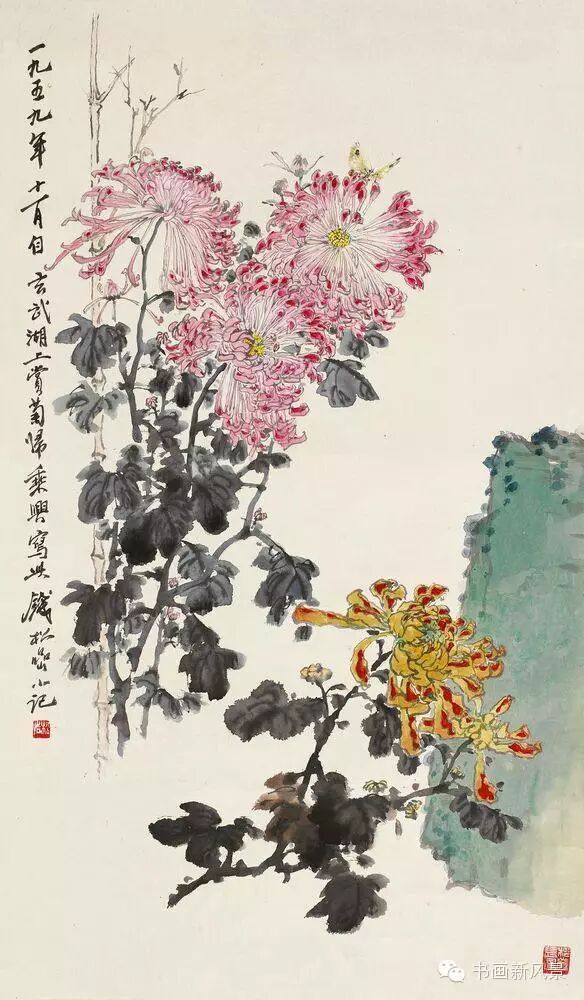 一九五九年十一月自玄武湖上赏菊归乘兴写此钱松嵒小记
书画新风景